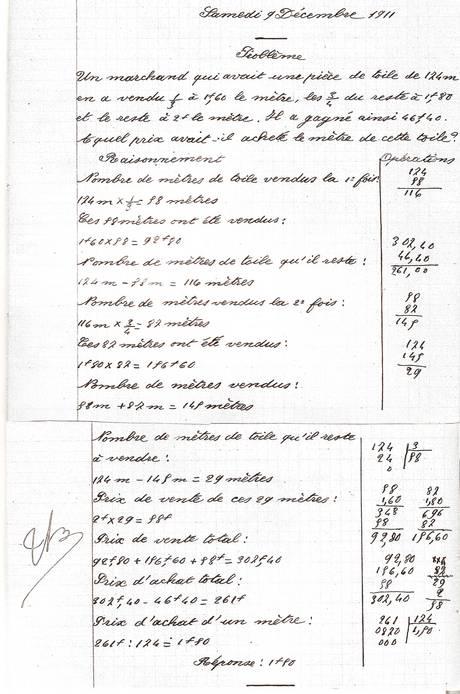 Samedi 9 Décembre 1911
Problème
Un marchand qui avait une pièce de toile de 174m
en a vendu 1/3 à 1f60 le mètre, les 3/4 du reste à 1f80
et le reste à 2f le mètre. Il a gagné ainsi 46f40.
A quel prix avait-il acheté le mètre de cette toile?
Raisonnement
Nombre de mètres de toile vendus la 1e fois:
174m × 1/3 = 58 mètres
Ces 58 mètres ont été vendus:
1f60 × 58 = 92f80
Nombre de mètres de toile qu'il reste:
174m - 58m = 116 mètres
Nombre de mètres vendus la 2e fois:
116m × 3/4 = 87 mètres
Ces 87 mètres ont été vendus:
1f80 × 87 = 156f60
Nombre de mètres vendus:
58m + 87m = 145 mètres
Opérations
174
58
116
307,40
46,40
261,00
58
87
145
174
145
29
Nombre de mètres de toile qu'il reste
à vendre:
174m - 145m = 29 mètres
Prix de vente de ces 29 mètres:
2f × 29 = 58f
Prix de vente total:
92f80 + 156f60 + 58f = 307f40
Prix d'achat total:
307f,40 - 46f40 = 261f
Prix d'achat d'un mètre:
261f : 174 = 1f50
Réponse: 1f50
174 3
24 58
0
58 87
1,60 1,80
348 696
58 87
92,80 156,60
92,80
156,60
58 29
307,40 2
58
261 174
0870 1,50
000